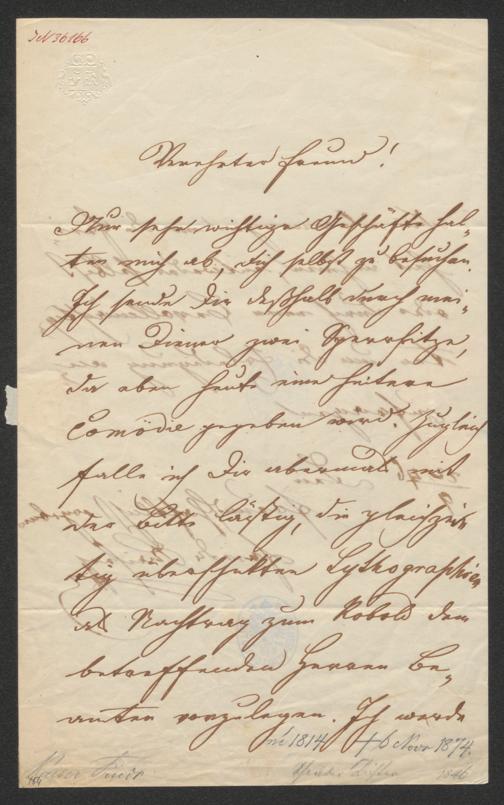 JN 36166
Verehrter Freund!
Nur sehr wichtige Geschäfte hal-
ten mich ab, Dich selbst zu besuchen.
Ich sende Dir deßhalb durch mei-
nen Diener zwei Sperrsitze,
da eben heute eine heitere
Comödie gegeben wird. Zugleich
falle ich Dir abermals mit
der Bitte lästig, die gleichzei-
tig überschickten Lythographien
als Nachtrag zum Kobold den
betreffenden Herren Be-
amten vorzulegen. Ich werde
1814 † 6 Nov 1874.
1846